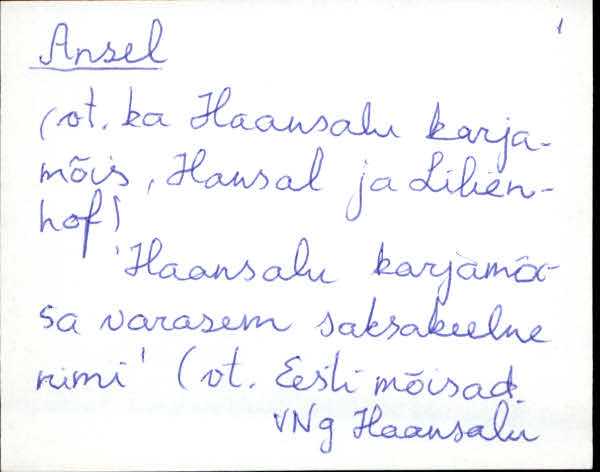 1
Ansel
(vt. ka Haansalu karja-
mõis, Hansal ja Lilien-
hof)
'Haansalu karjamõi-
sa varasem saksakeelne
nimi' (vt. Eesti mõisad.
VNg Haansalu